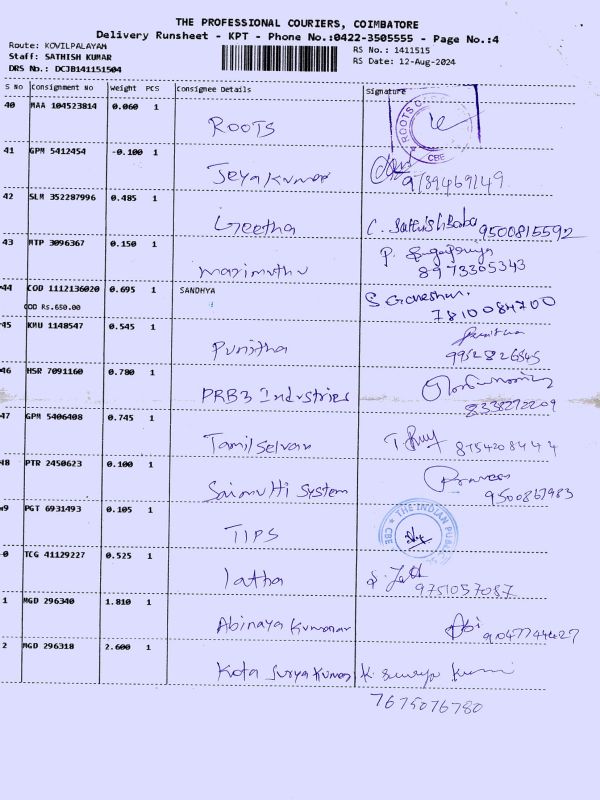 THE PROFESSIONAL COURIERS, COIMBATORE
Delivery Runsheet - KPT - Phone No.:0422-3505555 - Page No.:4
Route: KOVILPALAYAM RS No.: 1411515
Staff: SATHISH KUMAR RS Date: 12-Aug-2024
DRS No.: DCJB141151504
S No Consignment No Weight PCS Consignee Details Signature
40 MAA 104523814 0.060 1 ROOTS ROOTS CBE
41 GPM 5412454 -0.100 1 Jeyakumar 9789469149
42 SLM 352287996 0.485 1 Geetha C. SathishBabu 9500815592
43 MTP 3096367 0.150 1 marimuthu P. 8973305343
44 COD 1112136020 0.695 1 SANDHYA S Ganeshan. 7810084700
COD Rs.650.00
45 KMU 1148547 0.545 1 Punitha Punitha 9952826545
46 HSR 7091160 0.780 1 PRB3 Industries 8338272209
47 GPM 5406408 0.745 1 Tamilselvan 8754208444
48 PTR 2450623 0.100 1 Saimutti System Praveen 9500867983
49 PGT 6931493 0.105 1 TIPS THE INDIAN PUBLIC CBE
0 TCG 41129227 0.525 1 latha 9751057087
1 MGD 296340 1.810 1 Abinaya Kumaran Abi 9047744427
2 MGD 296318 2.600 1 Kota Surya Kumar K. Surya Kumar
7675076780